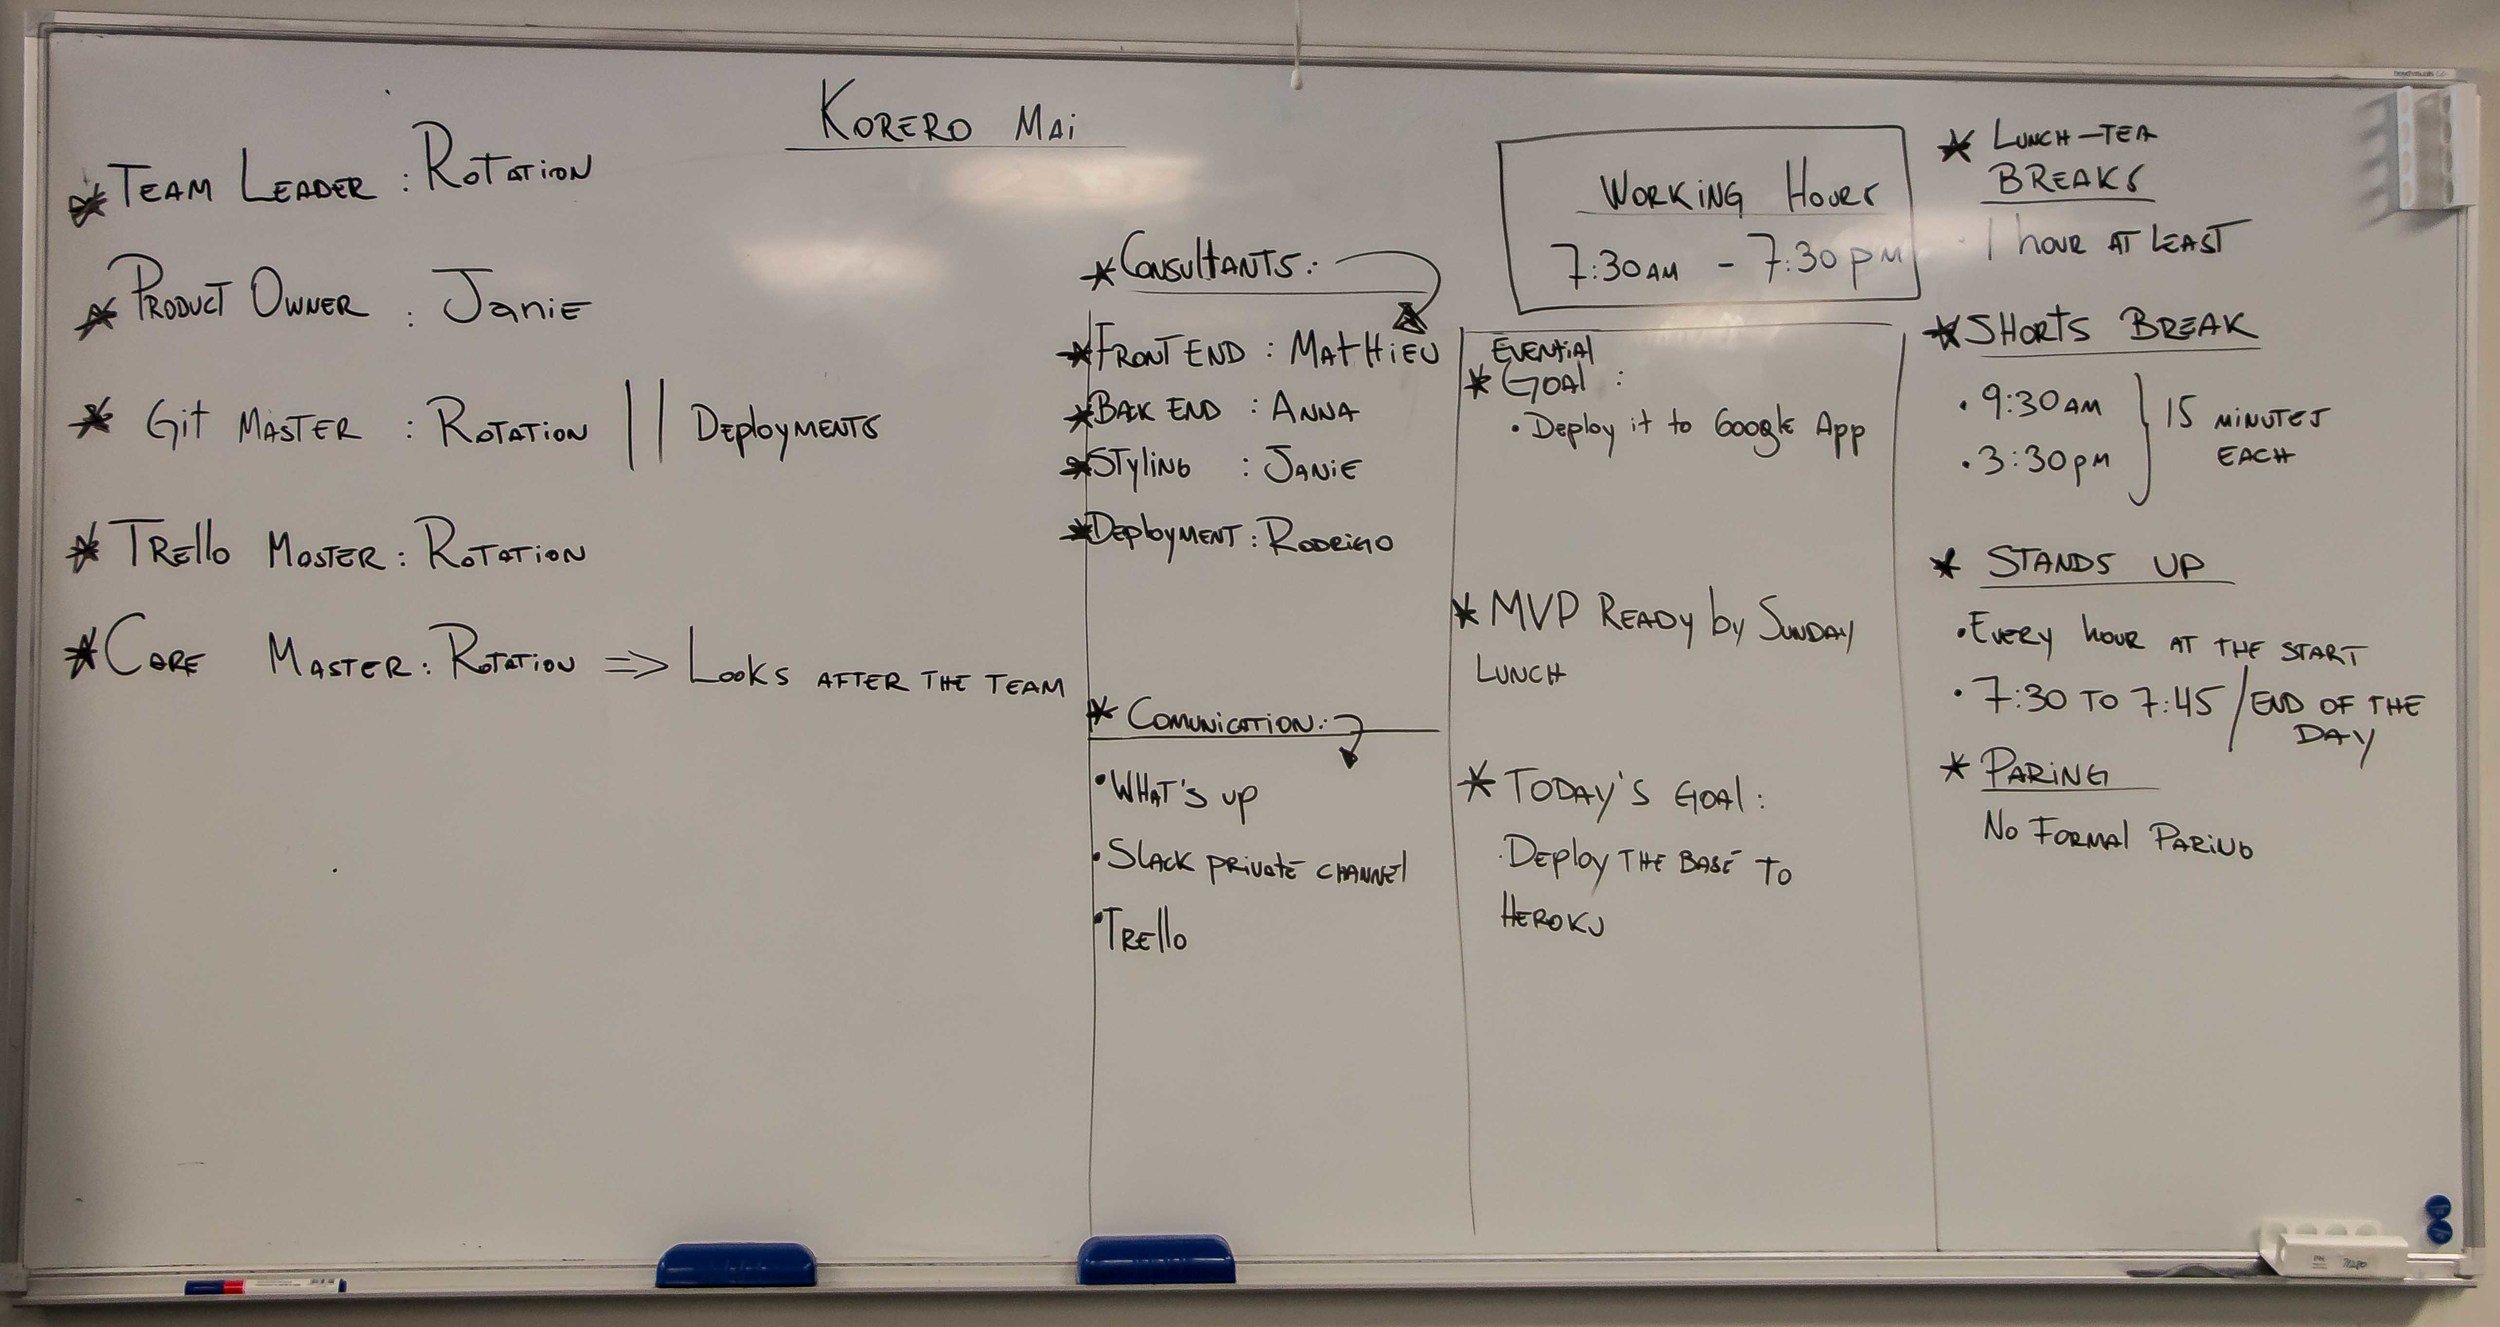 KORERO MAI
* TEAM LEADER : ROTATION
* PRODUCT OWNER : JANIE
* GIT MASTER : ROTATION || DEPLOYMENTS
* TRELLO MASTER : ROTATION
* CARE MASTER : ROTATION => LOOKS AFTER THE TEAM
* CONSULTANTS:
* FRONT END : MATHIEU
* BACK END : ANNA
* STYLING : JANIE
* DEPLOYMENT : RODRIGO
* COMUNICATION:
• WHAT'S UP
• SLACK PRIVATE CHANNEL
• TRELLO
WORKING HOURS
7:30AM - 7:30PM
EVENTIAL
* GOAL :
• Deploy it to Google App
* MVP READY by SUNDAY
LUNCH
* TODAY'S GOAL:
• DEPLOY THE BASE TO
HEROKU
* LUNCH-TEA
BREAKS
• 1 HOUR AT LEAST
* SHORTS BREAK
• 9:30AM
• 3:30PM
} 15 MINUTES
EACH
* STANDS UP
• EVERY HOUR AT THE START
• 7:30 TO 7:45 / END OF THE
DAY
* PARING
NO FORMAL PARING